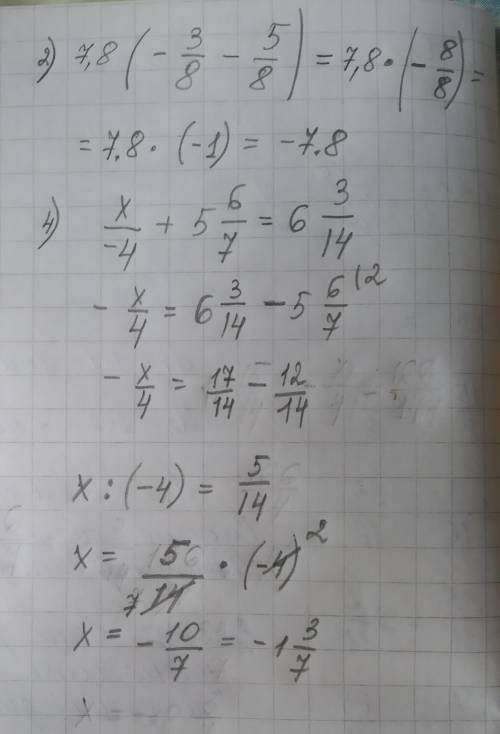 2) 7,8 (- 3/8 - 5/8) = 7,8 · (- 8/8) =
= 7.8 · (-1) = -7.8
4) x/-4 + 5 6/7 = 6 3/14
- x/4 = 6 3/14 - 5 6/7 12
- x/4 = 17/14 - 12/14
x : (-4) = 5/14
x = 5/14 7 · (-4) 2
x = - 10/7 = -1 3/7